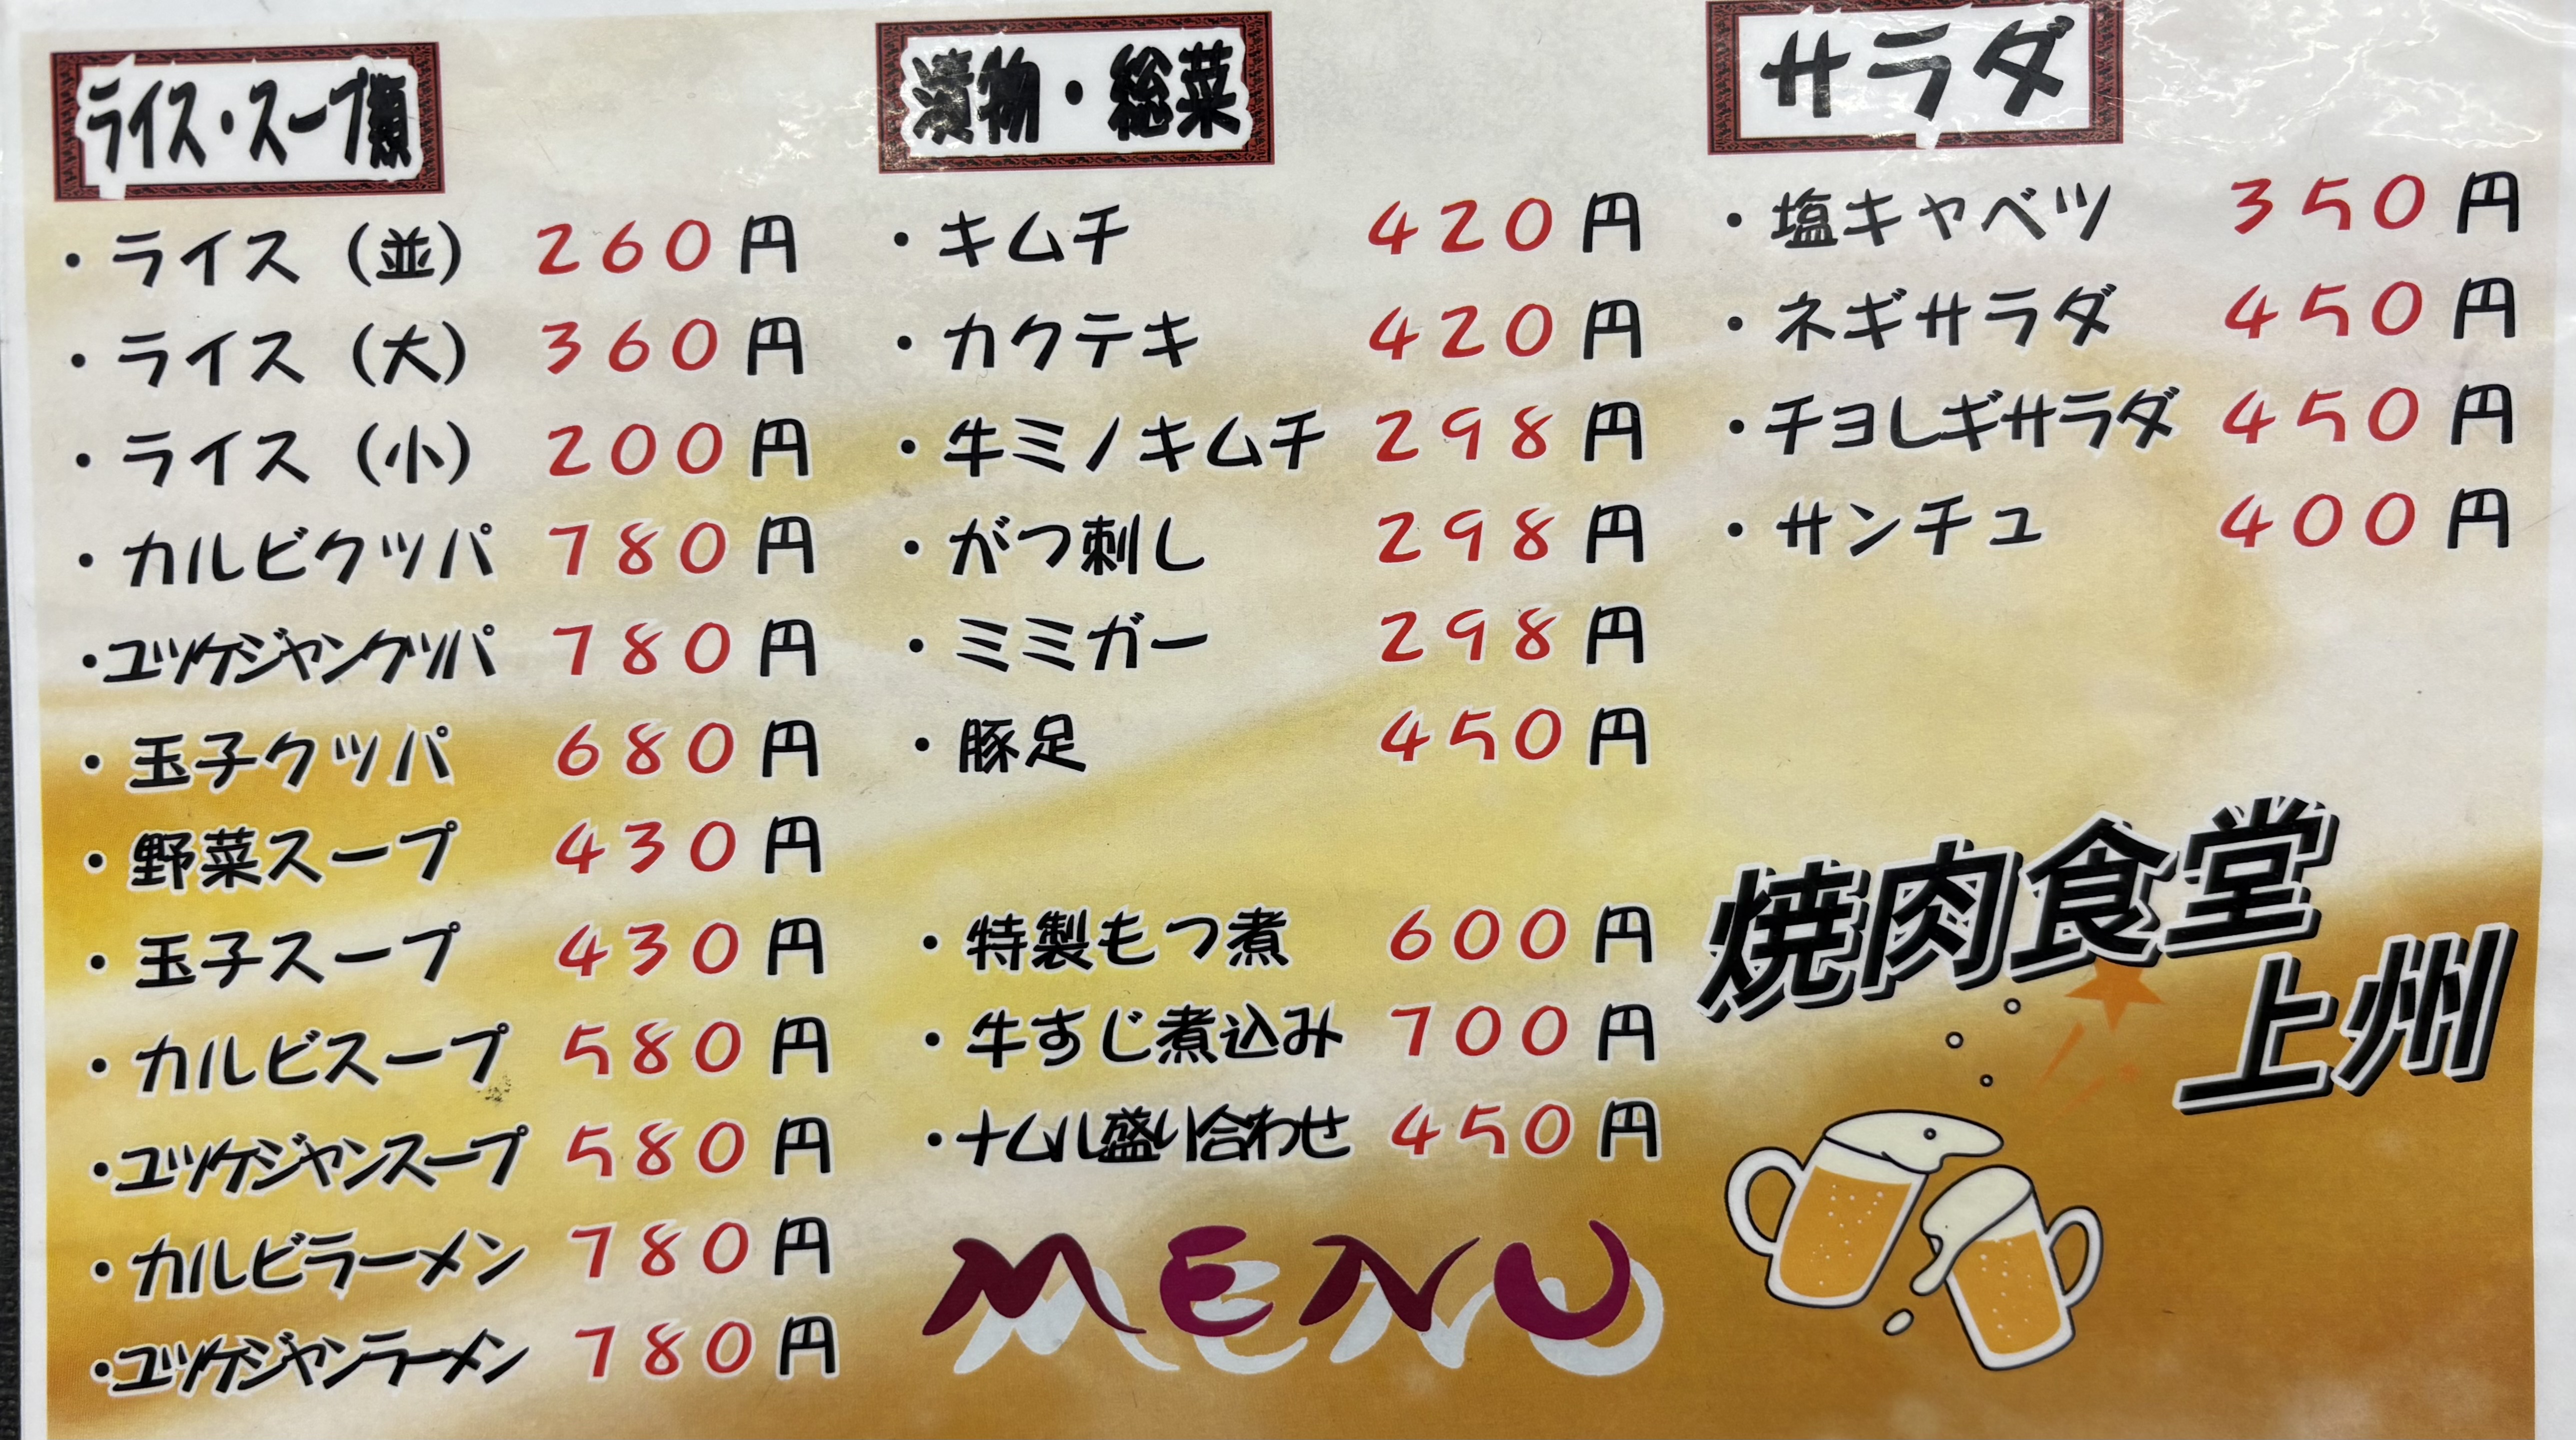 ライス・スープ類
・ライス（並） 260円
・ライス（大） 360円
・ライス（小） 200円
・カルビクッパ 780円
・ユッケジャンクッパ 780円
・玉子クッパ 680円
・野菜スープ 430円
・玉子スープ 430円
・カルビスープ 580円
・ユッケジャンスープ 580円
・カルビラーメン 780円
・ユッケジャンラーメン 780円
漬物・総菜
・キムチ 420円
・カクテキ 420円
・牛ミノキムチ 298円
・がつ刺し 298円
・ミミガー 298円
・豚足 450円
・特製もつ煮 600円
・牛すじ煮込み 700円
・ナムル盛り合わせ 450円
MENU
サラダ
・塩キャベツ 350円
・ネギサラダ 450円
・チョレギサラダ 450円
・サンチュ 400円
焼肉食堂
上州